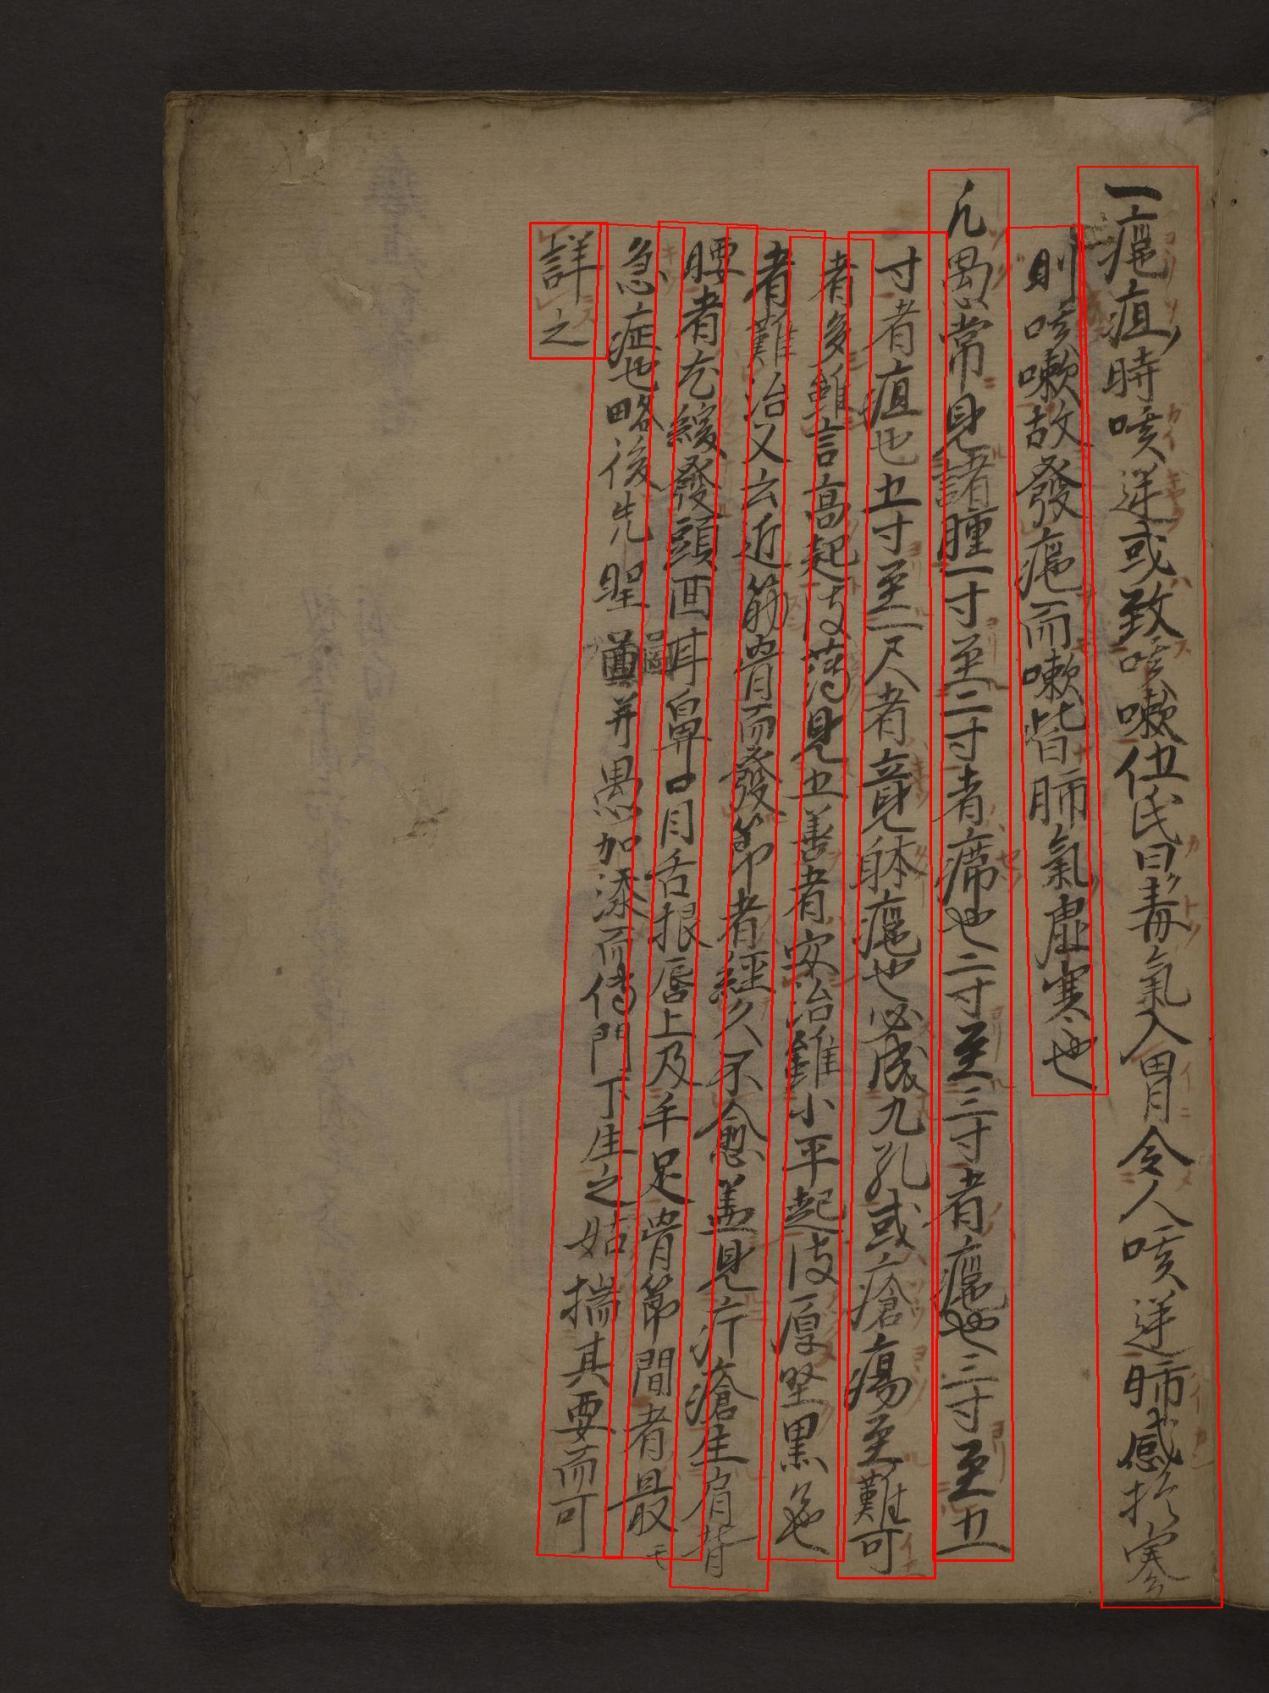 一癰疽時咳逆或致咳嗽伍氏曰毒氣入胃令人咳逆肺感於寒
則咳嗽故發癰而嗽皆肺氣虛寒也
凡愚常見諸腫一寸至二寸者癤也二寸至三寸者癰也三寸至五
寸者疽也五寸至一尺者竟体癰也必成九孔或瘡瘍至難可
者多雖言高起皮薄見五善者安治雖小平起皮厚堅黒色
者難治又云近筋骨而發節者經久不愈盖見疔瘡生肩背
腰者乞緩發頭面耳鼻口目舌根唇上及手足骨節間者最モ
急症也略後先聖啚并愚加添而傳門下生之姑揣其要而可
詳之